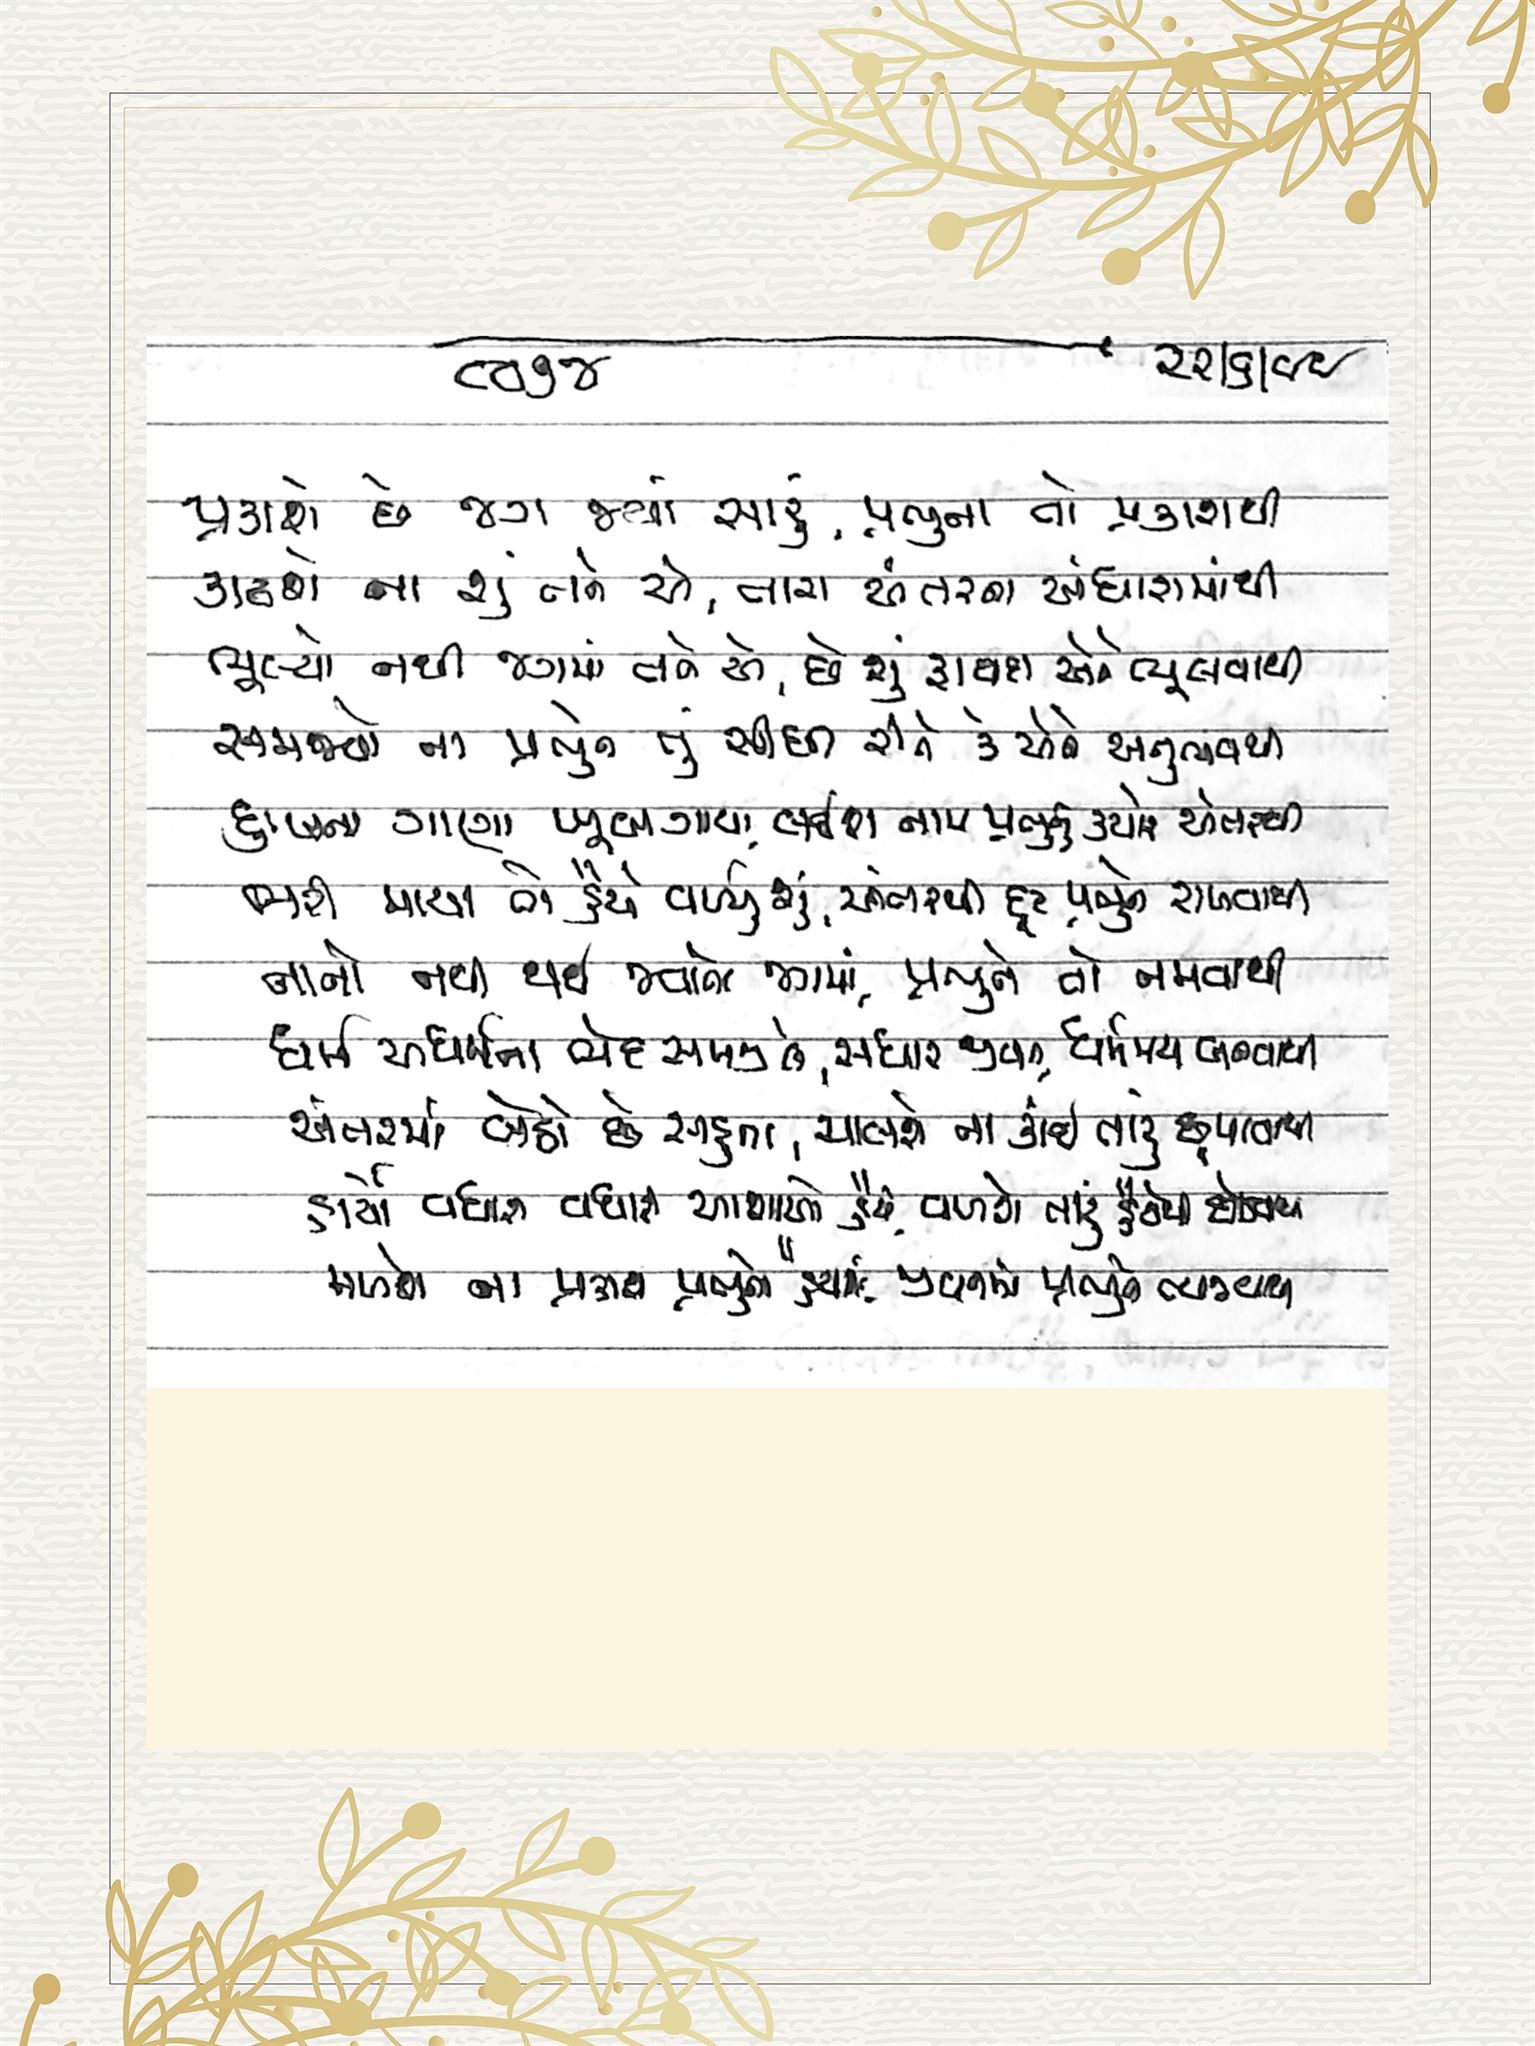 ૨૨/૬/૯૯
પ્રકાશે છે જગ જ્યાં સારું, પ્રભુના તો પ્રકાશથી
કાઢશે ના શું તને એ, તારા અંતરના અંધારામાંથી
ભૂલ્યો નથી જગમાં તને એ, છે શું ફાયદા એને ભૂલવાથી
સમજ્યો ના પ્રભુને તું સીધી રીતે કે એને અનુભવથી
દુઃખના ગાણા ખૂબ ગાયા, નામ પ્રભુનું અંતરથી
ભરી માયા તેં હૈયે વળ્યું શું, અંતરથી દૂર પ્રભુને રાખવાથી
નાનો નથી થઈ જવાનો જગમાં, પ્રભુને તો નમવાથી
ધર્મ અધર્મના ભેદ સમજીને, સુધાર જીવન, ધર્મમય બનવાથી
અંતરમાં બેઠો છે સહુના, ચાલશે ના કાંઈ તારું છુપાવાથી
વધારી વધારી આશાઓ હૈયે, વળશે તારું
મળશે ના પ્રકાશ પ્રભુનો હૈયામાં, જીવનમાં પ્રભુને ત્યજવાથી